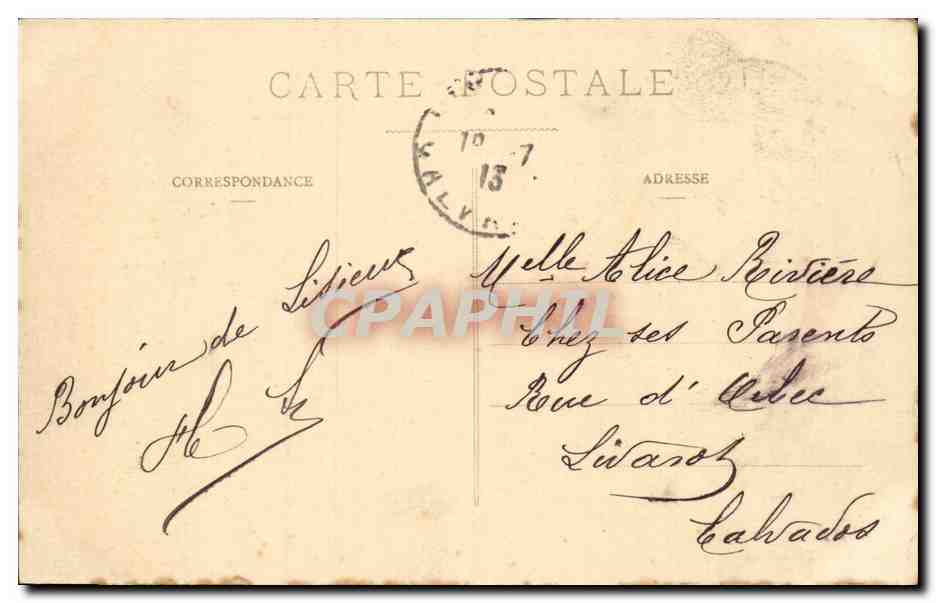 CARTE POSTALE
CORRESPONDANCE
ADRESSE
18 -7
13
CALVA
Bonjour de Lisieux
Melle Alice Rivière
Chez ses Parents
Rue d' Orbec
Livarot
Calvados
CPAPHIL